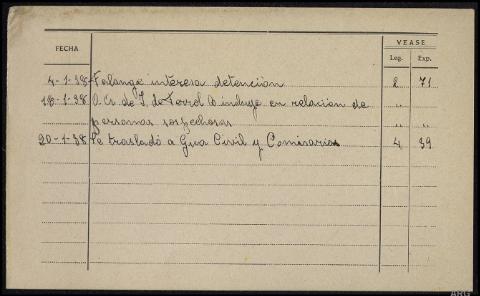 FECHA VEASE
Leg. Exp.
4-1-38 Falange interesa detención 2 71
18-1-38 O. de lo incluye en relación de " "
personas sospechosas " "
20-1-38 Se trasladó a Gua Civil y Comisarias 4 39
ARG